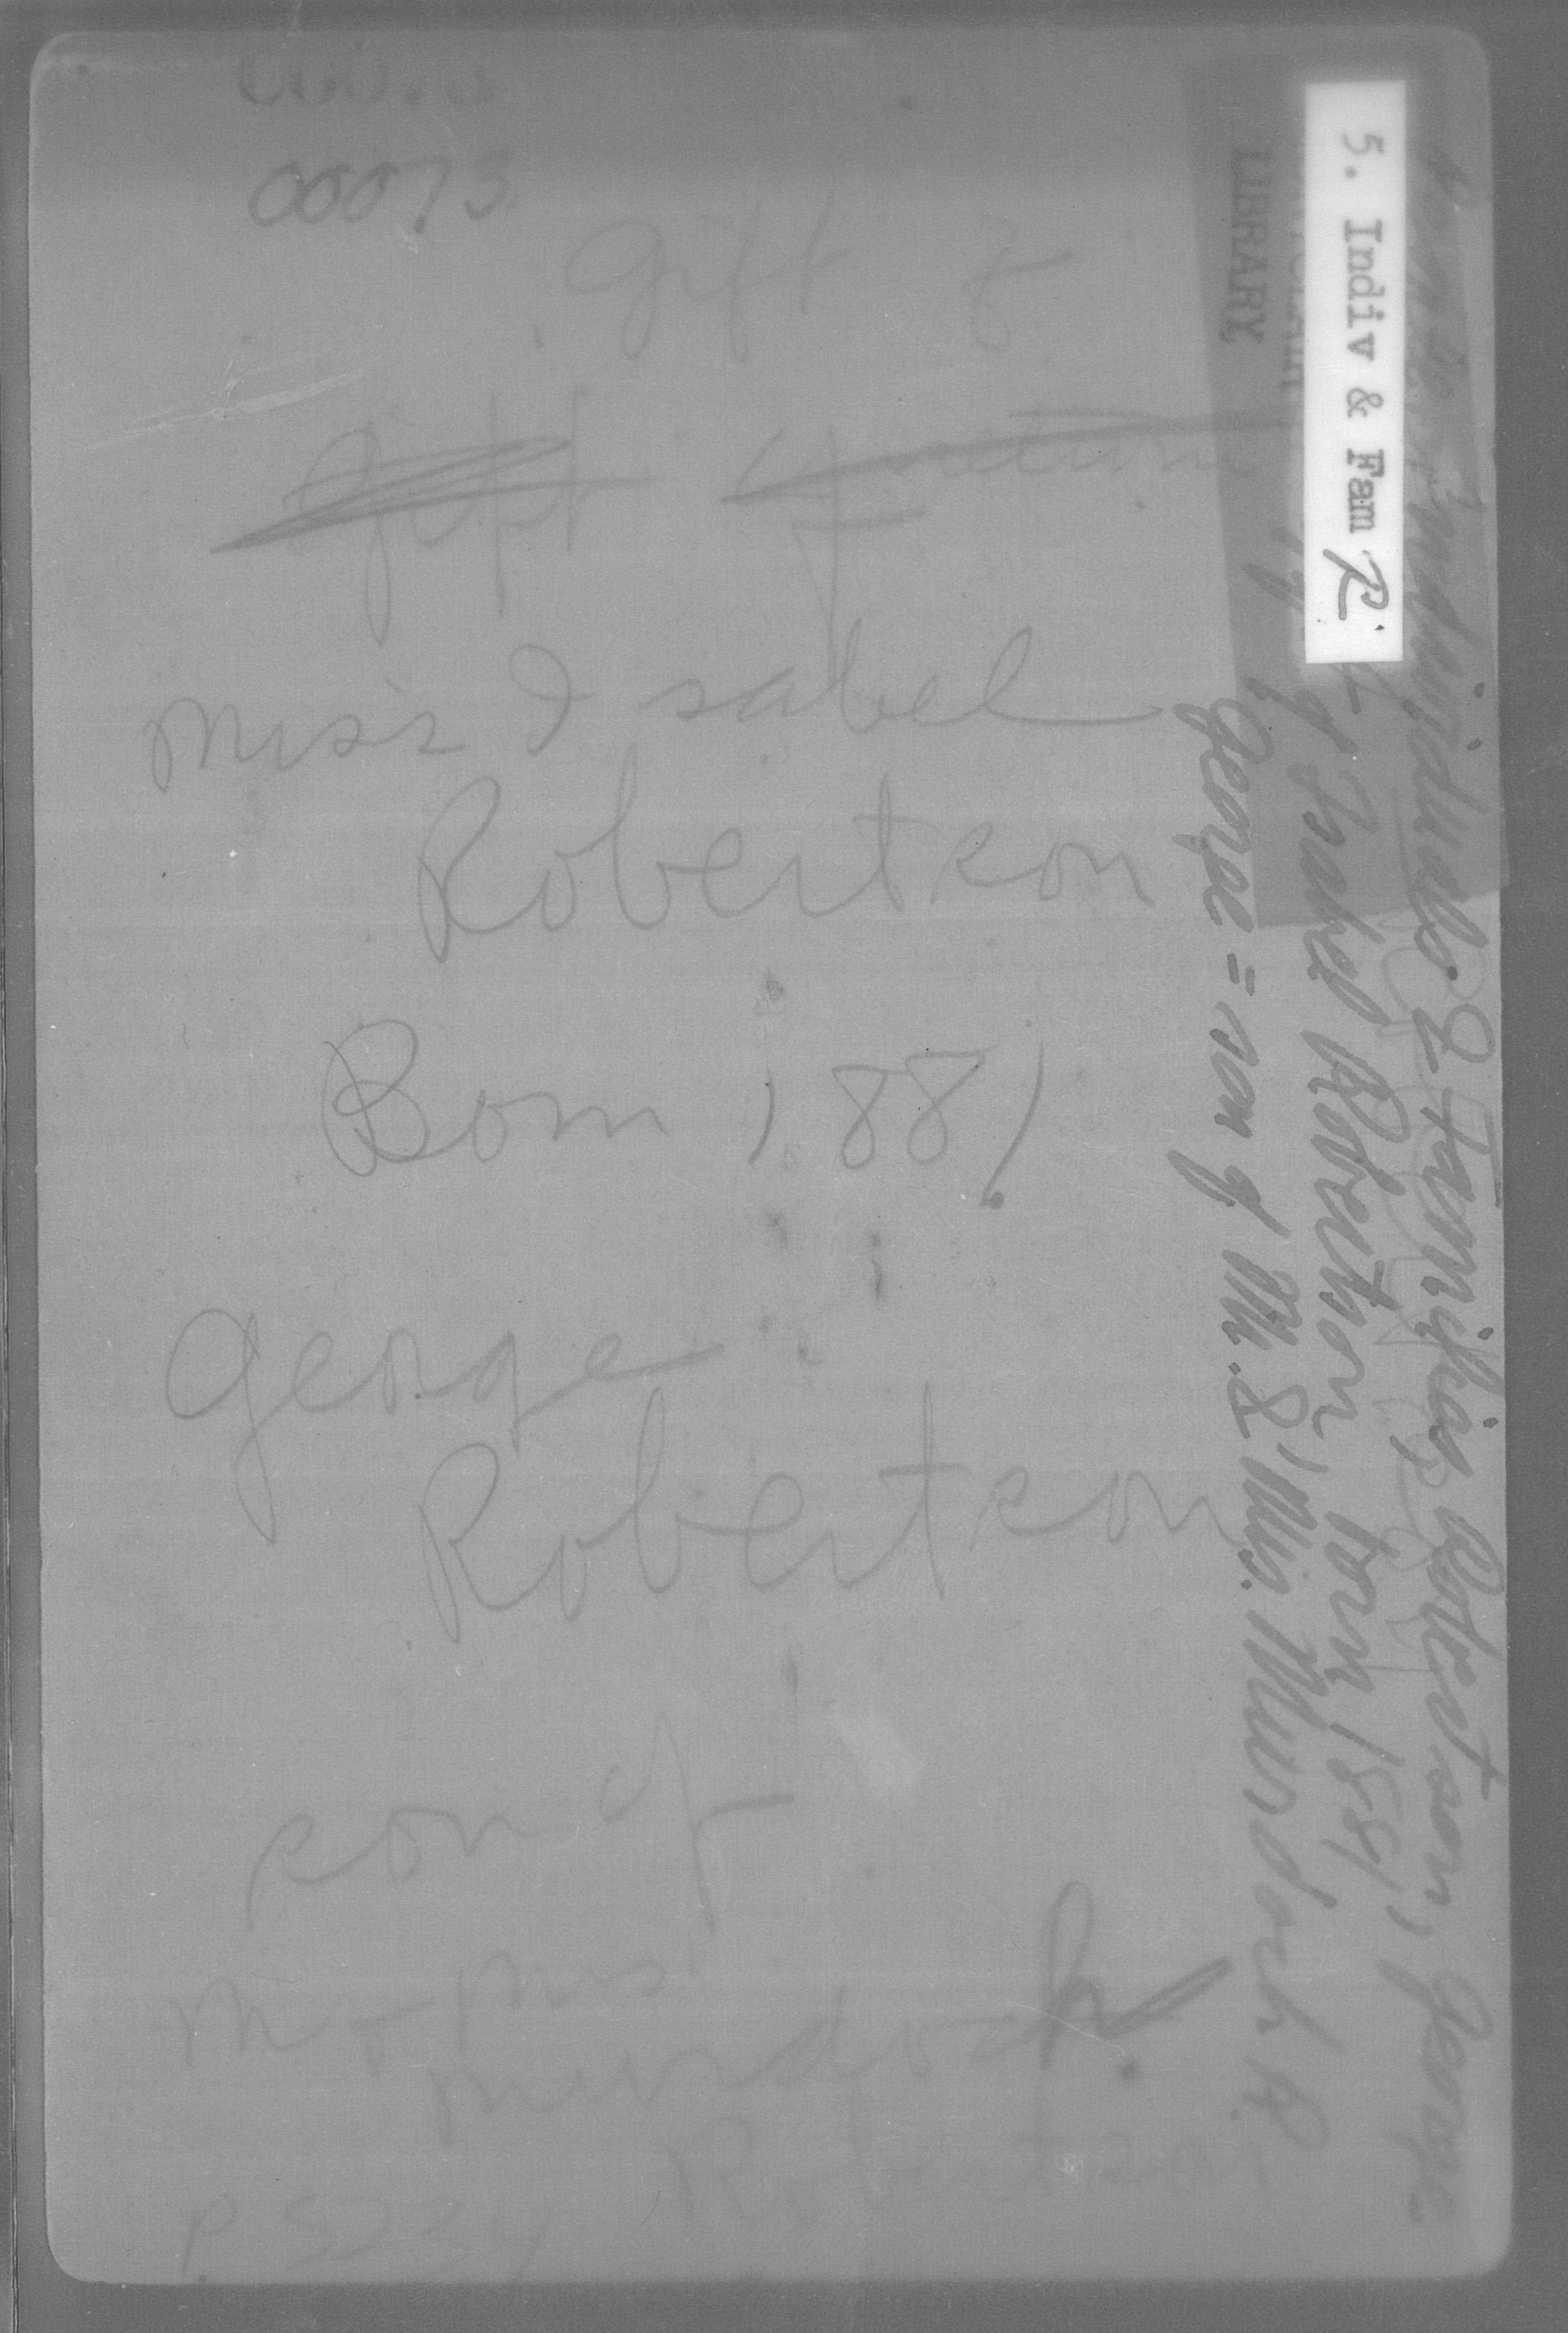 00073
Gift of
Gift of
Miss Isabel
Robertson
Born 1881
George
Robertson
son of
Mr & Mrs
Murdock
Robertson
P 5234
5. Indiv & Fam R.
Individuals & Families, Robertson, George
Isabel Robertson, born 1881
George = son of Mr. & Mrs. Murdoch R.
LIBRARY